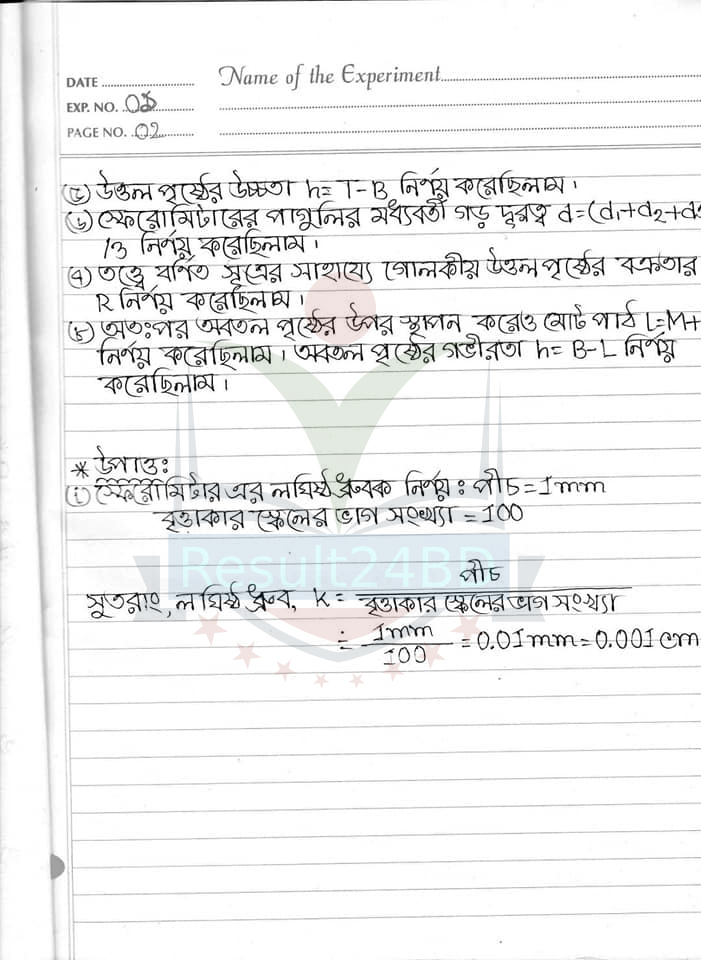 Name of the Experiment
DATE
EXP. NO. 02
PAGE NO. 02
(৫) উত্তল পৃষ্ঠের উচ্চতা h = T-B নির্ণয় করেছিলাম।
(৬) স্ফেরোমিটারের পাগুলির মধ্যবর্তী গড় দূরত্ব d=(d₁+d₂+d₃
/3 নির্ণয় করেছিলাম।
(৭) তত্ত্বে বর্ণিত সূত্রের সাহায্যে গোলকীয় উত্তল পৃষ্ঠের বক্রতার
R নির্ণয় করেছিলাম।
(৮) অতঃপর অবতল পৃষ্ঠের উপর স্থাপন করেও মোট পাঠ L=M+
নির্ণয় করেছিলাম। অবতল পৃষ্ঠের গভীরতা h = B-L নির্ণয়
করেছিলাম।
* উপাত্ত:
(i) স্ফেরোমিটার এর লঘিষ্ঠ ধ্রুবক নির্ণয়: পীচ = 1mm
বৃত্তাকার স্কেলের ভাগ সংখ্যা = 100
Result24BD
সুতরাং, লঘিষ্ঠ ধ্রুব, K = পীচ / বৃত্তাকার স্কেলের ভাগ সংখ্যা
= 1mm / 100 = 0.01mm = 0.001cm